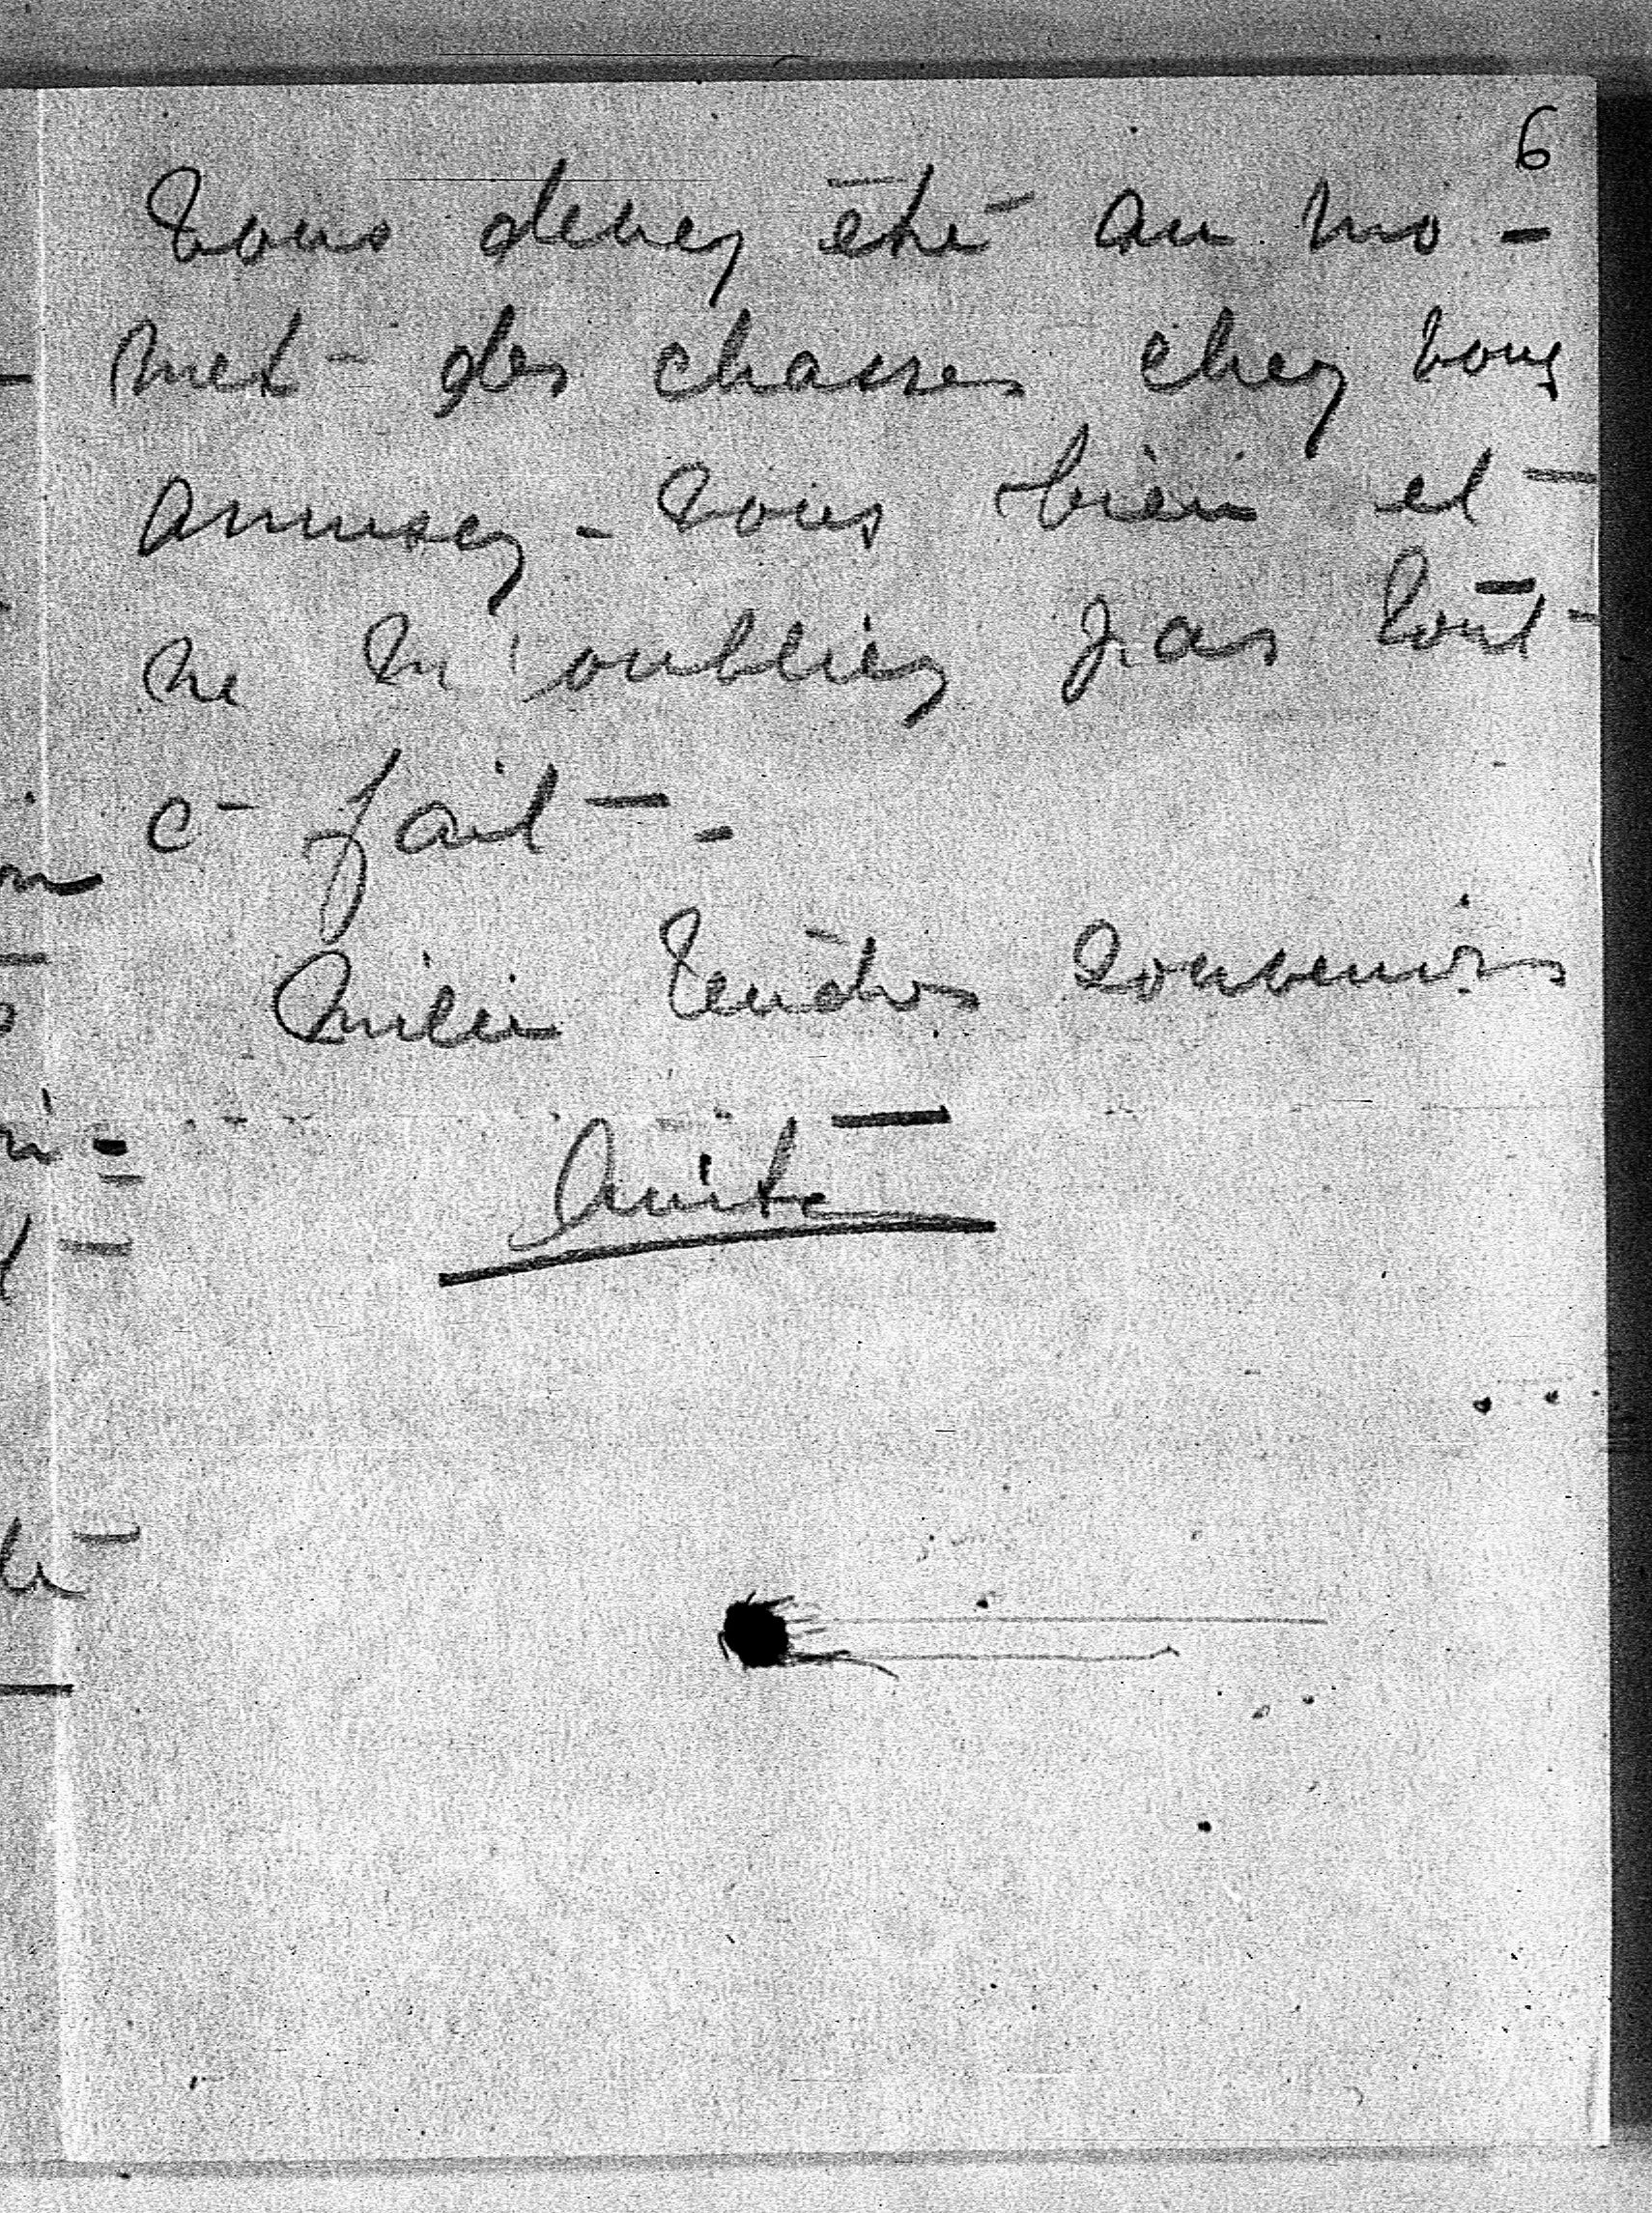 6
Vous devez être au mo-
ment des chasses chez vous
amusez-vous bien et
ne m'oubliez pas tout
à fait -
Mille tendres souvenirs
Anita